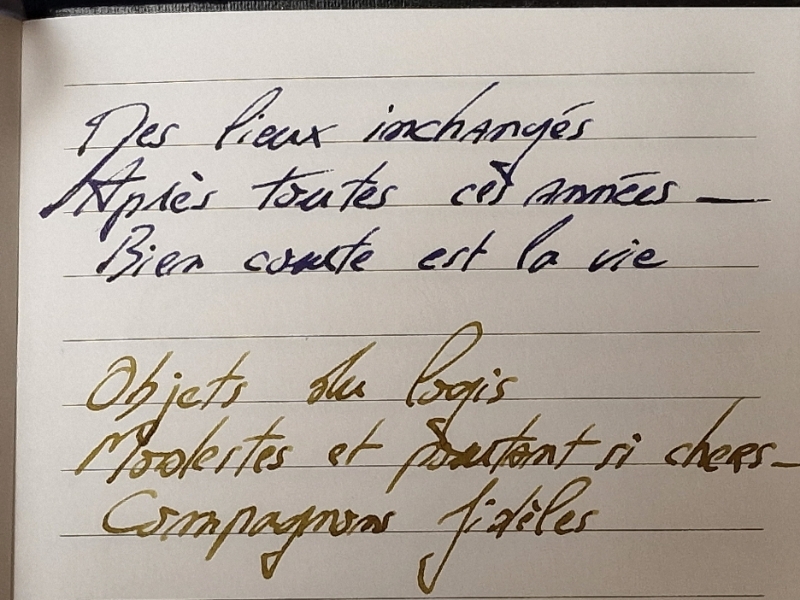 Des lieux inchangés
Après toutes ces années —
Bien courte est la vie
Objets du logis
Modestes et pourtant si chers —
Compagnons fidèles